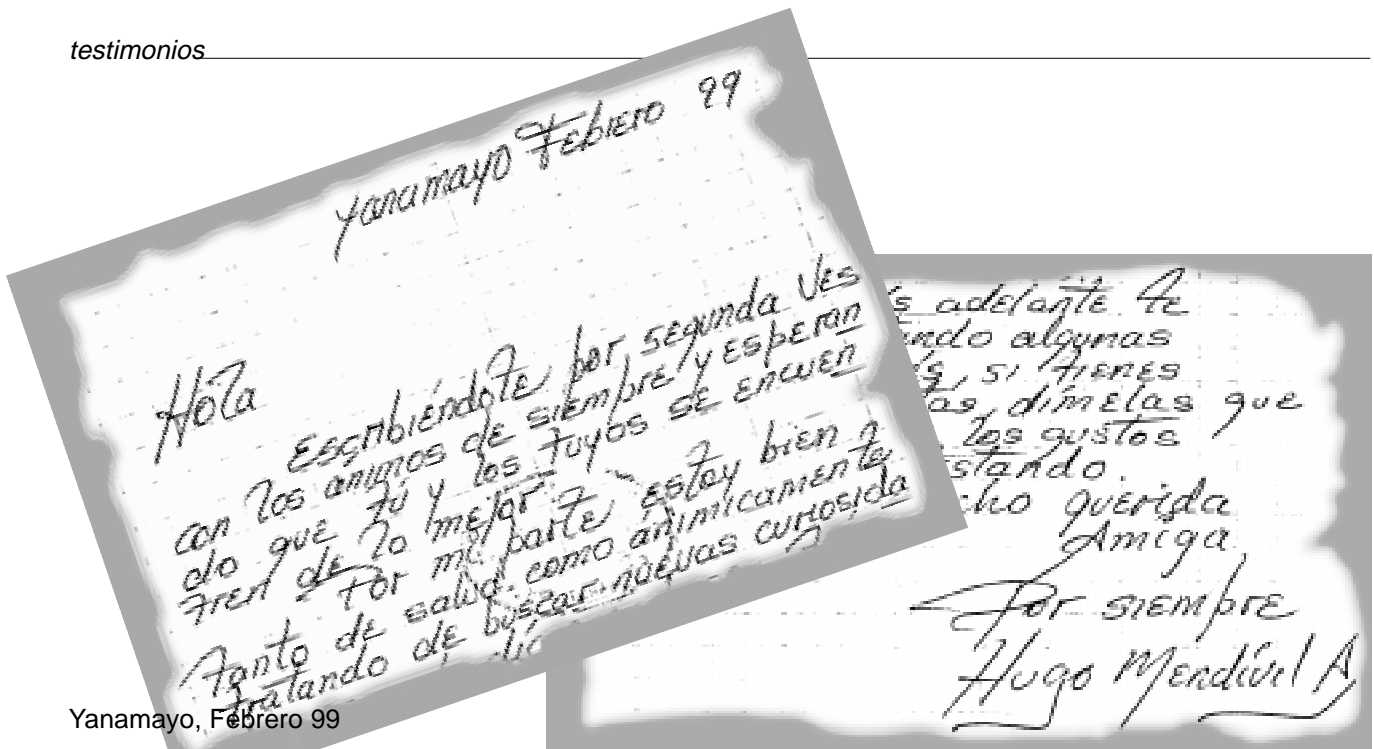 testimonios
Yanamayo Febrero 99
Hola
Escribiéndote por segunda ves
con los animos de siempre y esperan
do que tú y los tuyos se encuen
tren de lo mejor.
Por mi parte estoy bien
Tanto de salud como animicamente
tratando de buscar nuevas curiosida
adelante te
ando algunas
si tienes
dímelas que
los gustos
querida
Amiga
Por siempre
Hugo Mendívil A
Yanamayo, Febrero 99